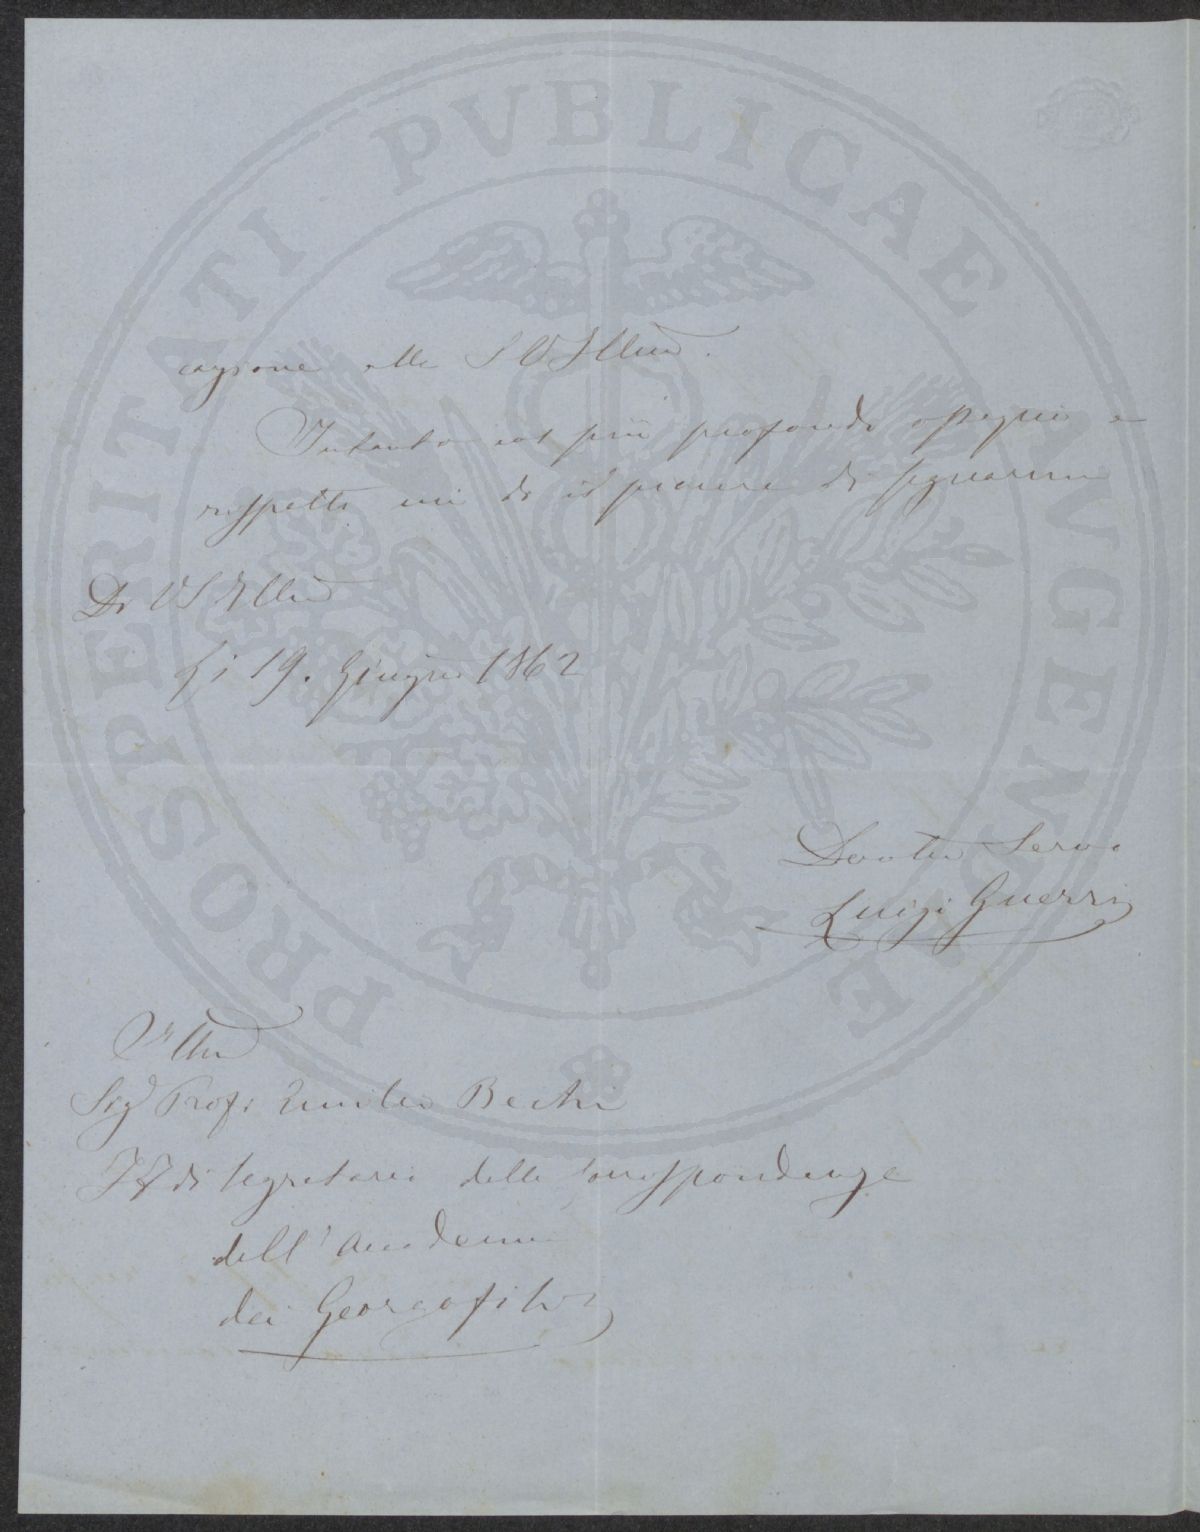 cagione alla S V Illma.
Intanto col più profondo ossequio e
rispetto mi do il piacere di segnarmi
Di V S Illma
Li 19. Giugno 1862
Devoto Servo
Luigi Guerri
Illmo
Sigr Profr Emilio Bechi
FF di Segretario delle Corrispondenze
dell'Accademia
dei Georgofili
PROSPERITATI PVBLICAE AVGENDAE